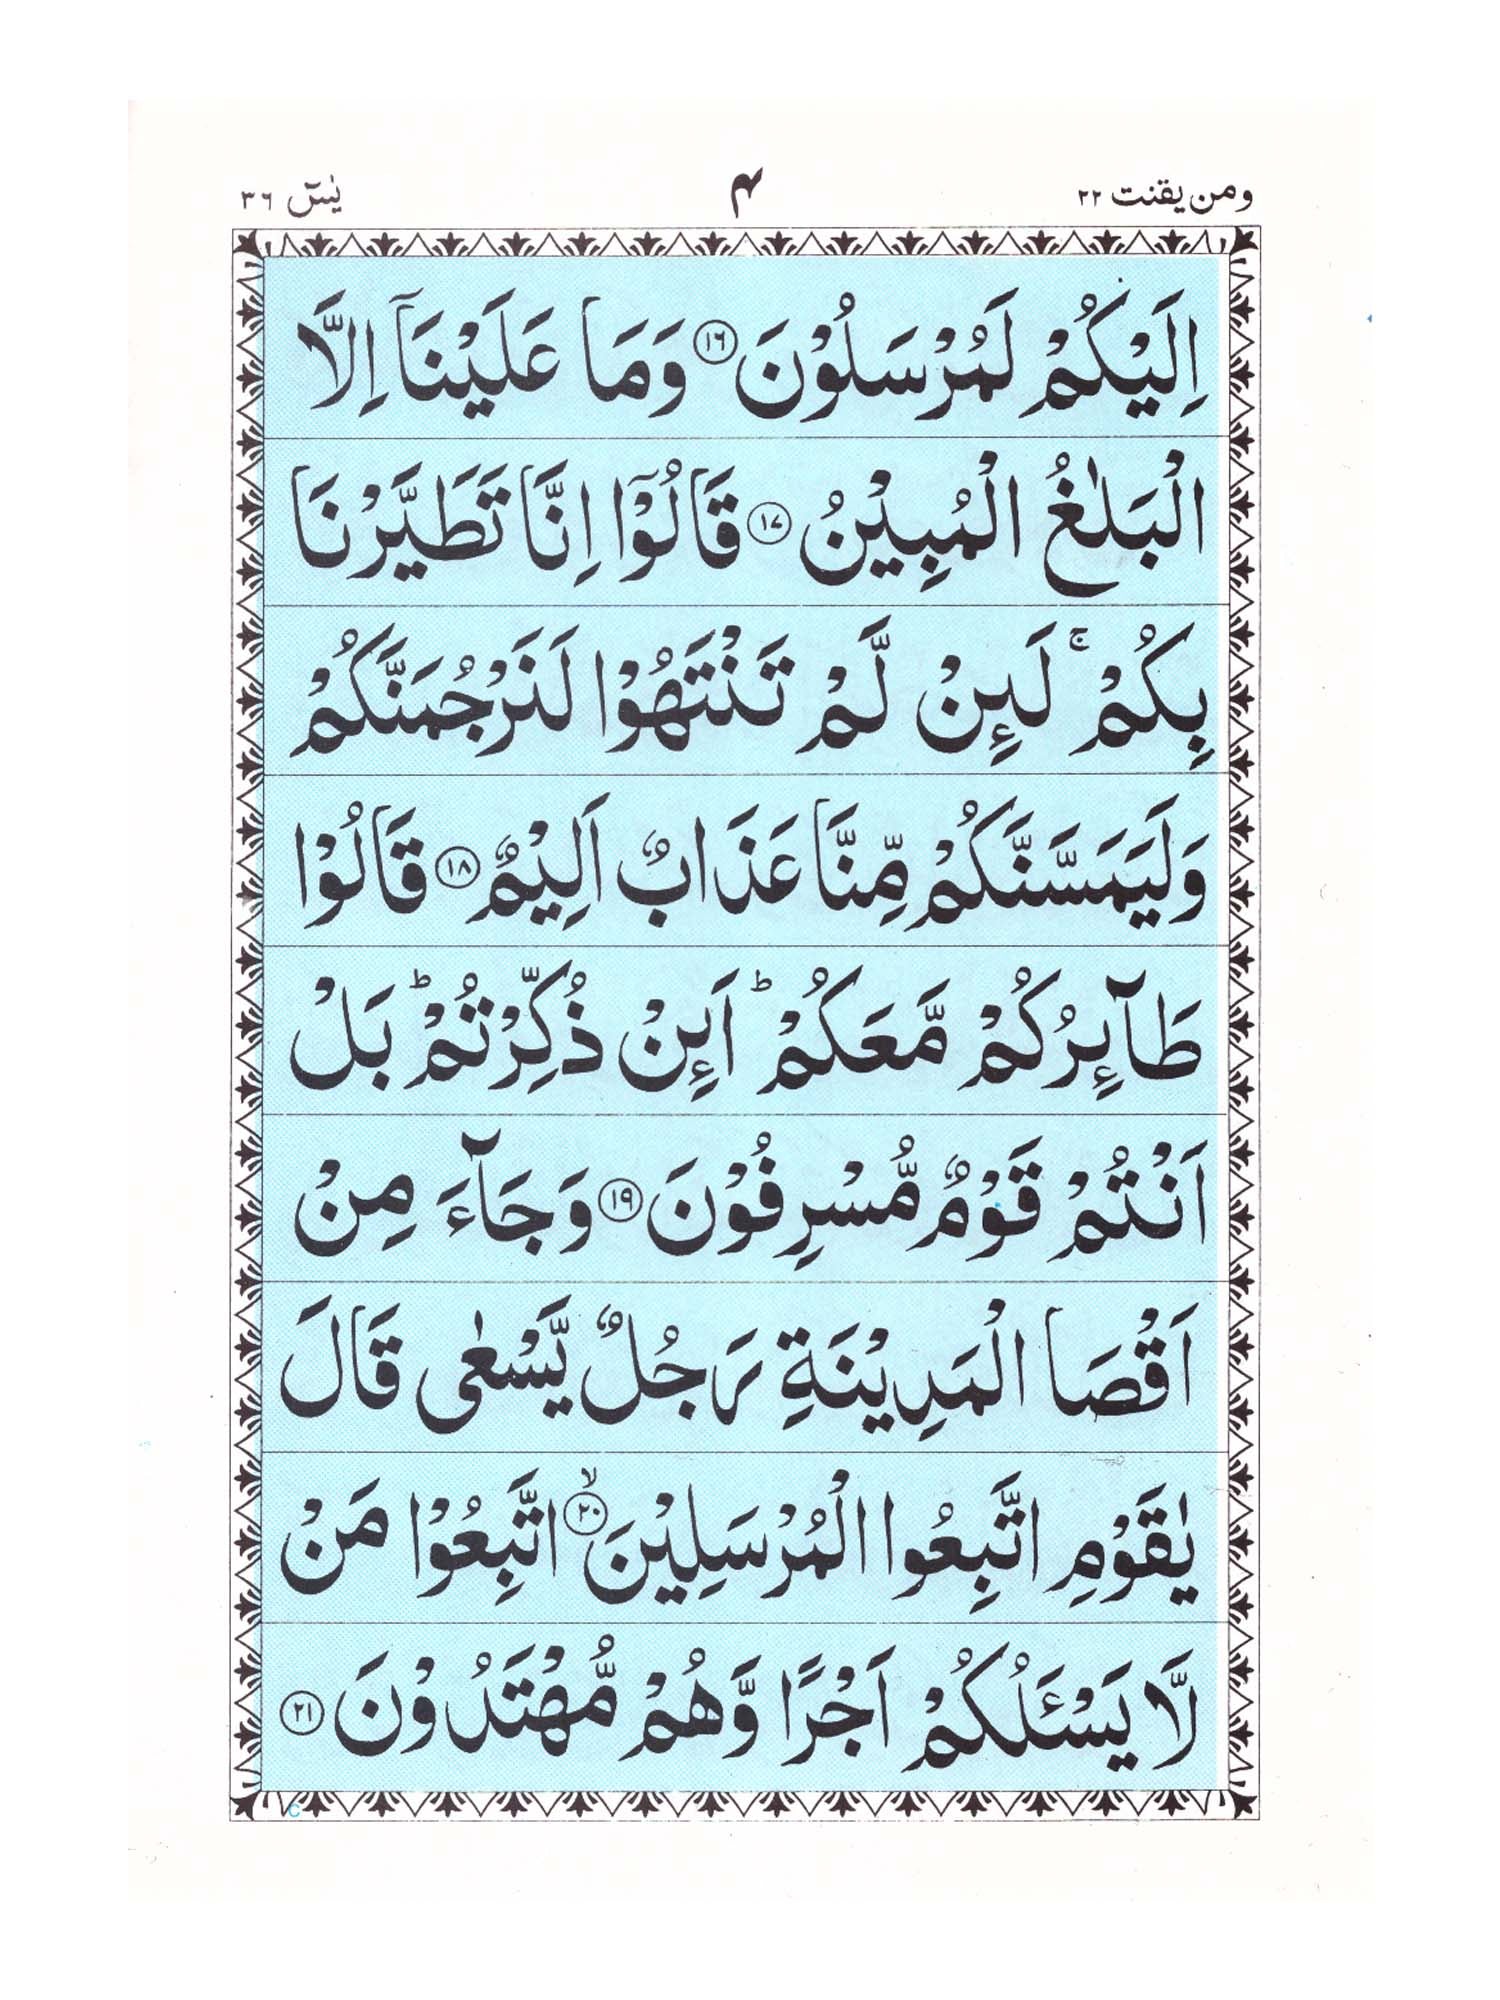 ومن يقنت ٢٢ ۴ يٰسٓ ٣٦
اِلَيْكُمْ لَمُرْسَلُوْنَ ۝١٦ وَمَا عَلَيْنَآ اِلَّا
الْبَلٰغُ الْمُبِيْنُ ۝١٧ قَالُوْٓا اِنَّا تَطَيَّرْنَا
بِكُمْ ۚ لَئِنْ لَّمْ تَنْتَهُوْا لَنَرْجُمَنَّكُمْ
وَلَيَمَسَّنَّكُمْ مِّنَّا عَذَابٌ اَلِيْمٌ ۝١٨ قَالُوْا
طَآئِرُكُمْ مَّعَكُمْ ؕ اَئِنْ ذُكِّرْتُمْ ؕ بَلْ
اَنْتُمْ قَوْمٌ مُّسْرِفُوْنَ ۝١٩ وَجَآءَ مِنْ
اَقْصَا الْمَدِيْنَةِ رَجُلٌ يَّسْعٰى قَالَ
يٰقَوْمِ اتَّبِعُوا الْمُرْسَلِيْنَ ۝٢٠ ۙ اتَّبِعُوْا مَنْ
لَّا يَسْـَٔلُكُمْ اَجْرًا وَّهُمْ مُّهْتَدُوْنَ ۝٢١